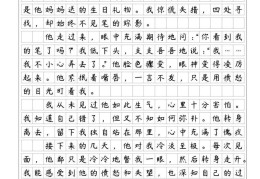 是他妈妈送的生日礼物。我惊慌失措，四处寻
找，却始终不见笔的踪影。
他走过来，眼中充满期待地问：“你看到我
的笔了吗？”我低下头，支支吾吾地说：“我……
我不小心弄丢了。”他脸色骤变，眼神变得凌厉
起来。他紧抿着嘴唇，一言不发，只是用愤怒
的目光盯着我。
我从未见过他如此生气，心里十分害怕。
我知道自己错了，但又不知如何弥补。他转身
离去，留下我独自站在那里，心中充满了愧疚
接下来的几天，他对我冷淡至极。每次见
面，他都只是冷冷地瞥我一眼，然后转身走开。
我能感受到他的愤怒和失望，也深知自己的过